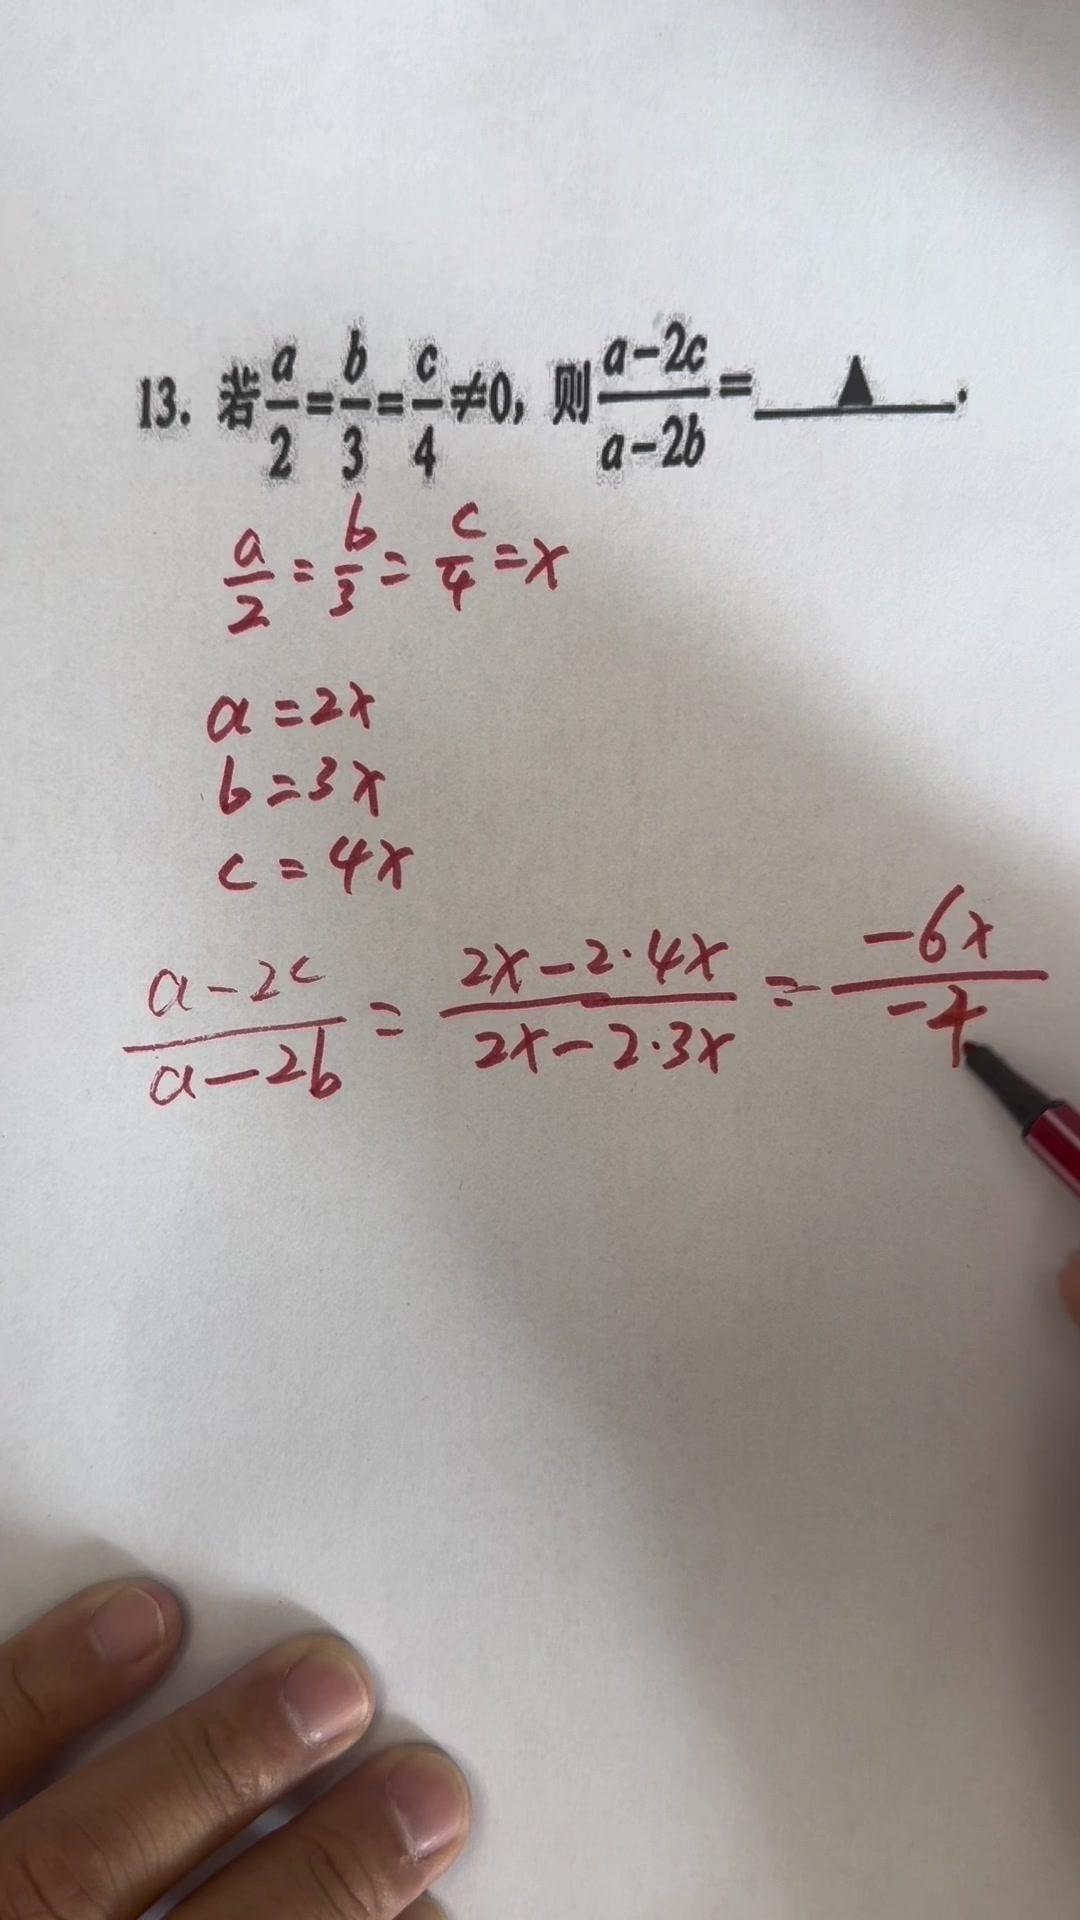 13. 若a/2=b/3=c/4≠0, 则(a-2c)/(a-2b)=____▲____.
a/2=b/3=c/4=x
a=2x
b=3x
c=4x
(a-2c)/(a-2b)=(2x-2·4x)/(2x-2·3x)=(-6x)/(-4